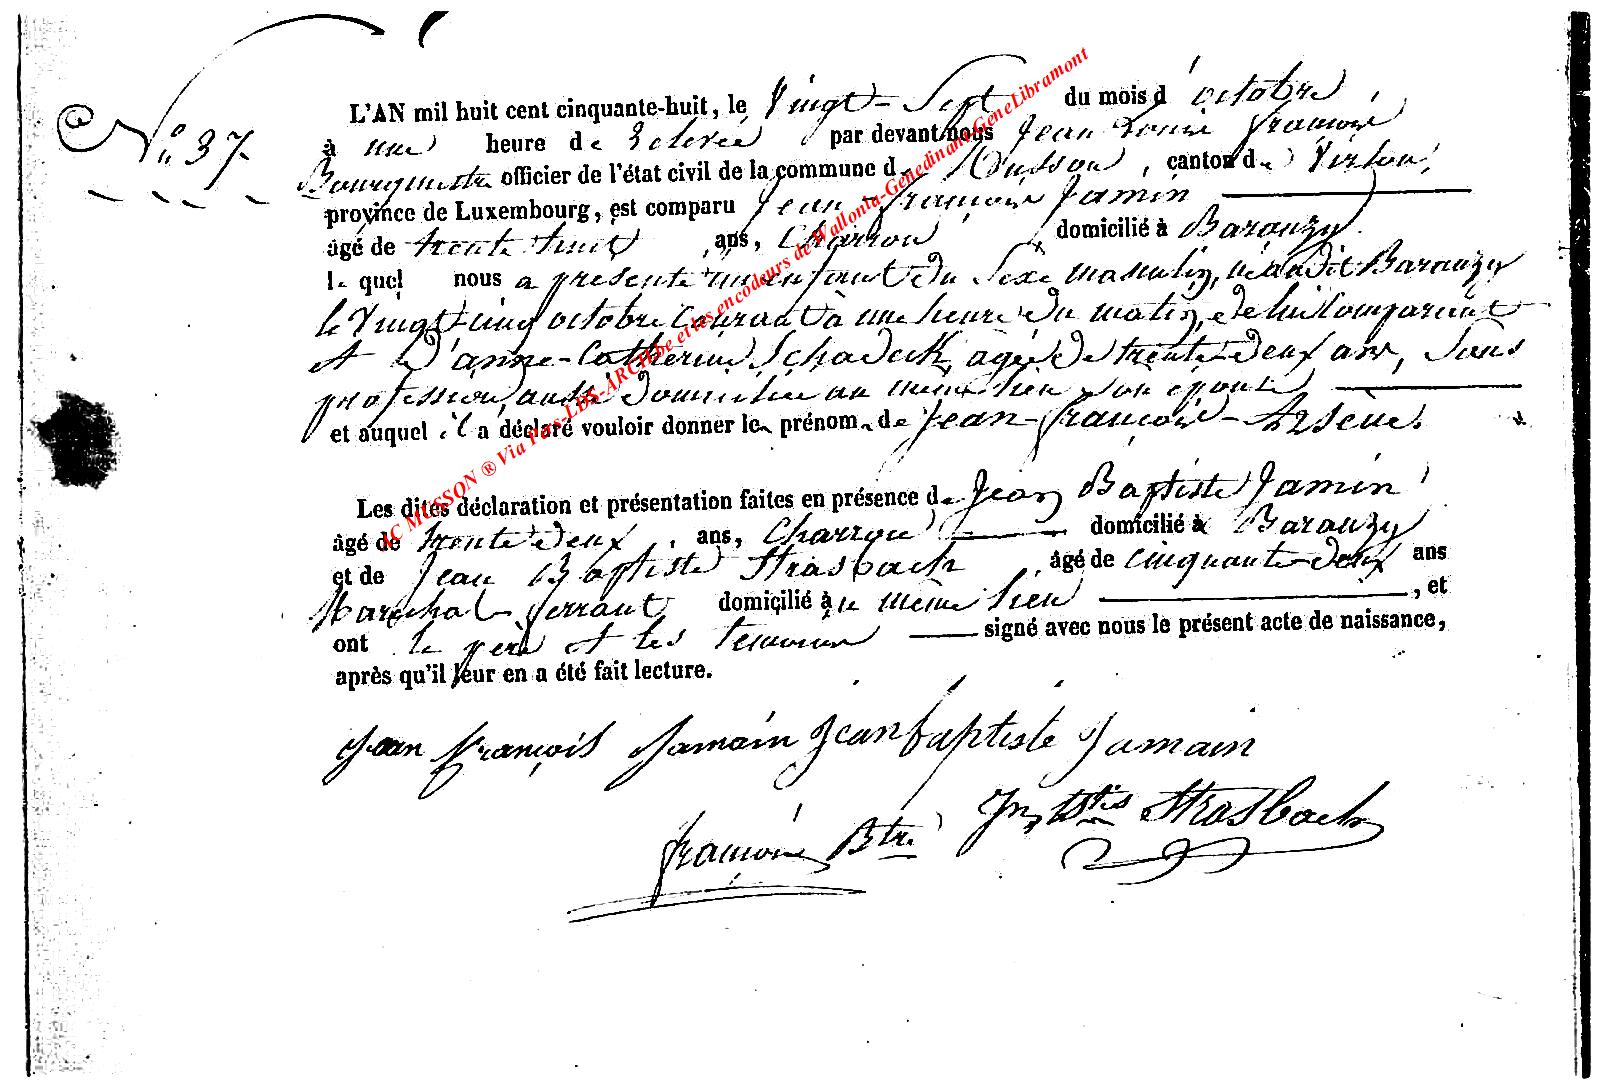 N.° 37.
L'AN mil huit cent cinquante-huit, le Vingt-Sept du mois d'octobre,
à une heure de relevée par devant nous Jean Louis François
Bourgmestre officier de l'état civil de la commune de Musson, canton de Virton,
province de Luxembourg, est comparu Jean-François Jamin
âgé de trente huit ans, Charron domicilié à Baranzy.
le quel nous a présenté un enfant du Sexe masculin, né audit Baranzy
le Vingt-cinq octobre Courant à une heure du matin, de lui Comparant
et d'anne-Catherine Schadeck, agée de trente-deux ans, Sans
profession, aussi domiciliée au même lieu son épouse,
et auquel il a déclaré vouloir donner les prénoms de Jean-François-Arsène.
Les dites déclaration et présentation faites en présence de Jean Baptiste Jamin
âgé de trente deux, ans, Charron domicilié à Baranzy
et de Jean Baptiste Strasbach, âgé de cinquante-deux ans
Marechal-ferrant, domicilié au même lieu, et
ont le père et les temoins signé avec nous le présent acte de naissance,
après qu'il leur en a été fait lecture.
Jean François Jamain Jean baptiste Jamain
Jn Btis Strasbach
François Btre
AC MUSSON ® Via Pays-LDS-ARCH.be et les encodeurs de Wallonia-Genedinant-GeneLibramont